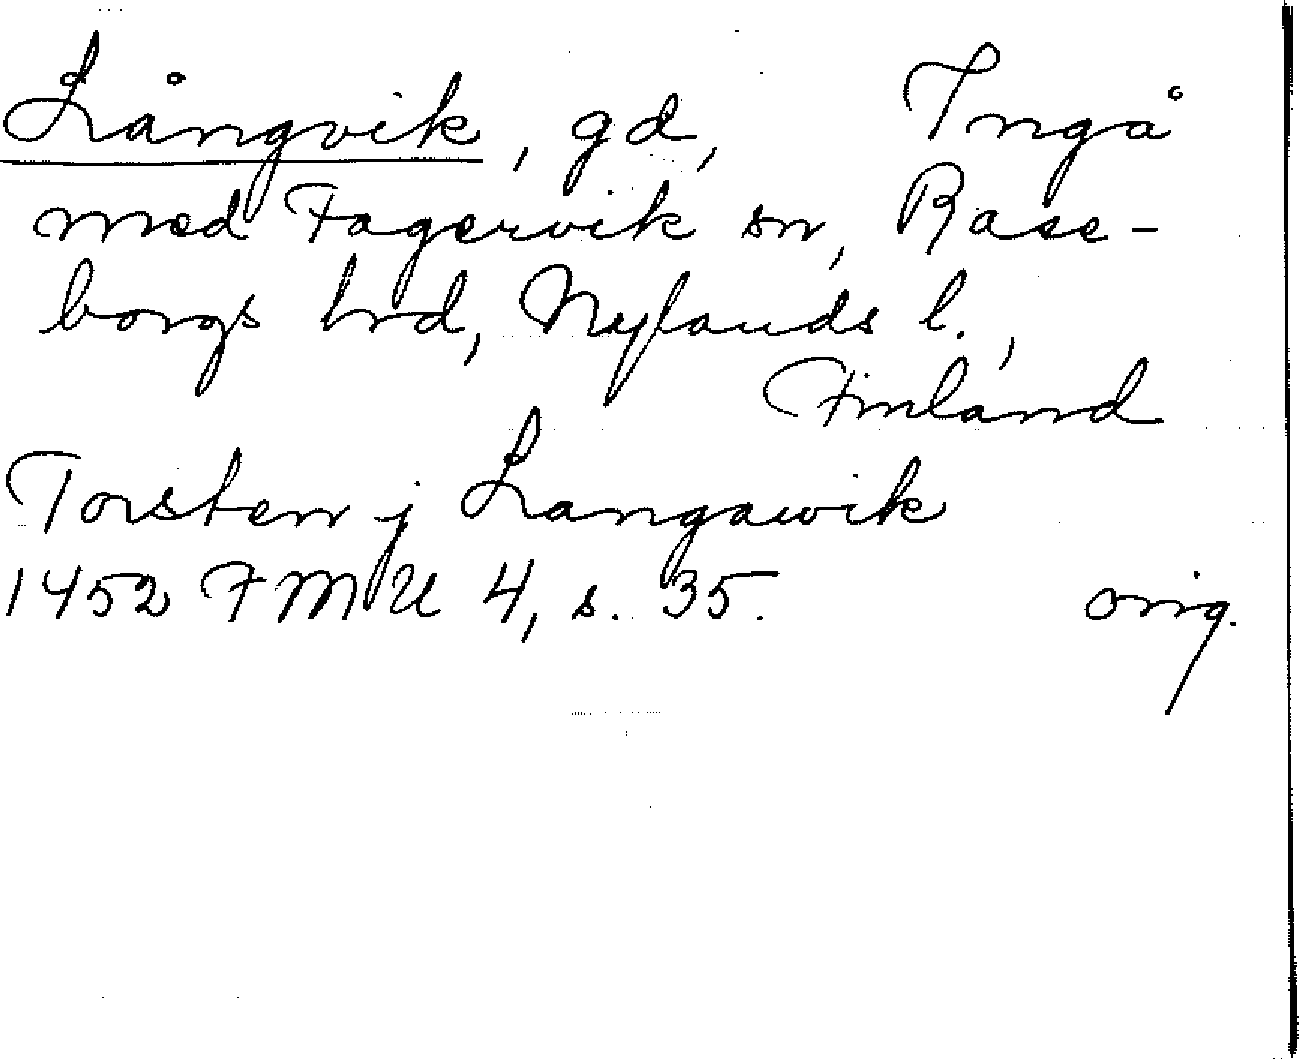 Långvik, gd, Ingå
med Fagervik sn, Rase-
borgs hrd, Nylands l.,
Finland
Torsten j Langawik
1452 FMU 4, s. 35. orig.